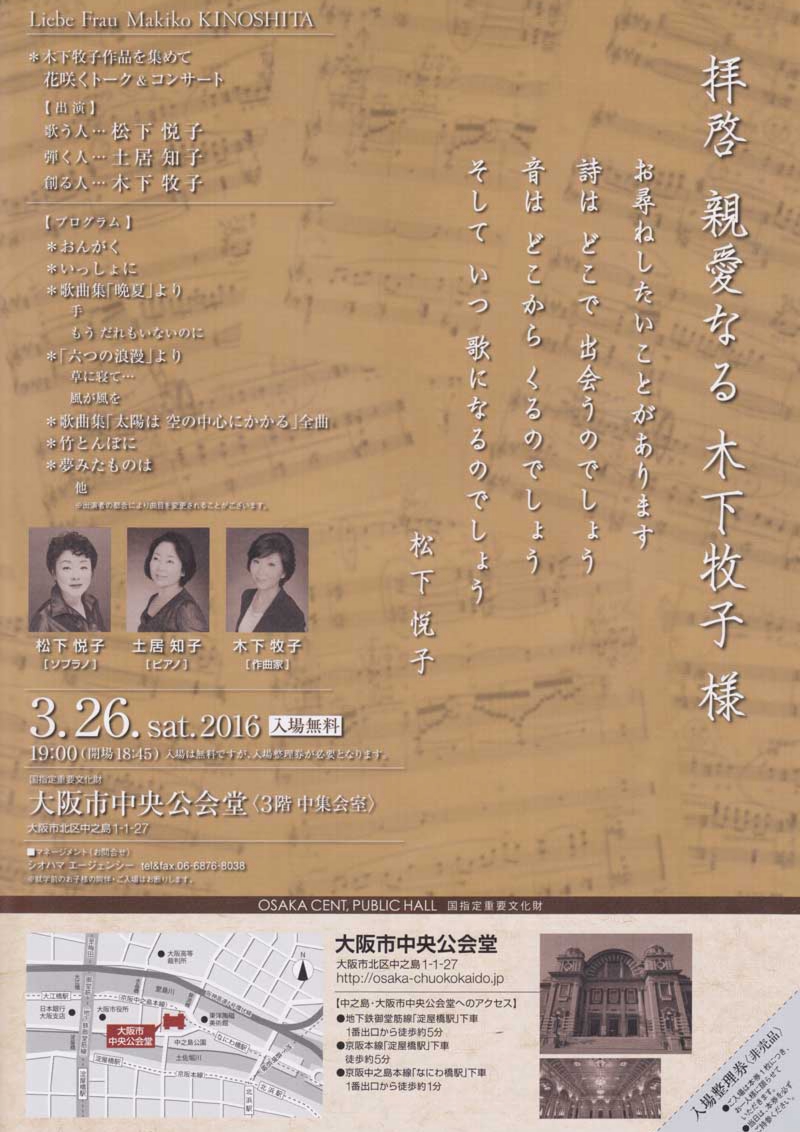 Liebe Frau Makiko KINOSHITA
＊木下牧子作品を集めて
花咲くトーク&コンサート
【出演】
歌う人…松下 悦子
弾く人…土居 知子
創る人…木下 牧子
【プログラム】
＊おんがく
＊いっしょに
＊歌曲集「晩夏」より
手
もう だれもいないのに
＊「六つの浪漫」より
草に寝て…
風が風を
＊歌曲集「太陽は 空の中心にかかる」全曲
＊竹とんぼに
＊夢みたものは
他
※出演者の都合により曲目を変更されることがございます。
拝啓 親愛なる 木下牧子 様
お尋ねしたいことがあります
詩は どこで 出会うのでしょう
音は どこから くるのでしょう
そして いつ 歌になるのでしょう
松下 悦子
松下 悦子
[ソプラノ]
土居 知子
[ピアノ]
木下 牧子
[作曲家]
3.26.sat.2016 入場無料
19:00(開場18:45) 入場は無料ですが、入場整理券が必要となります。
国指定重要文化財
大阪市中央公会堂〈3階 中集会室〉
大阪市北区中之島1-1-27
■マネージメント(お問合せ)
シオハマ エージェンシー tel&fax.06-6876-8038
※就学前のお子様の同伴・ご入場はお断りします。
OSAKA CENT, PUBLIC HALL 国指定重要文化財
大阪高等
裁判所
N
堂島川
大江橋駅
京阪中之島線
日本銀行
大阪支店
大阪市役所
東洋陶磁
美術館
なにわ橋駅
大阪市
中央公会堂
中之島公園
土佐堀川
淀屋橋駅
京阪本線
北浜駅
淀屋橋駅
北浜駅
大阪市中央公会堂
大阪市北区中之島1-1-27
http://osaka-chuokokaido.jp
【中之島・大阪市中央公会堂へのアクセス】
●地下鉄御堂筋線「淀屋橋駅」下車
1番出口から徒歩約5分
●京阪本線「淀屋橋駅」下車
徒歩約5分
●京阪中之島本線「なにわ橋駅」下車
1番出口から徒歩約1分
入場整理券〈非売品〉
●ご入場は本券1枚につき、
お一人様に限らせて
いただきます。
●当日は、本券を必ず
ご持参ください。